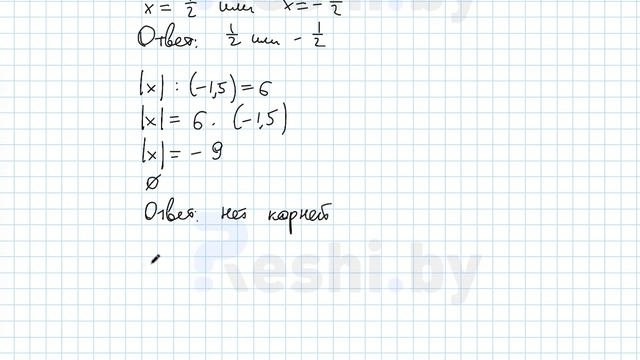 x = 1/2 или x = - 1/2
Ответ: 1/2 или - 1/2
|x| : (-1,5) = 6
|x| = 6 · (-1,5)
|x| = - 9
∅
Ответ: нет корней
Reshi.by